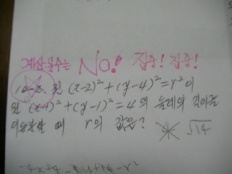 계산실수는 NO!! 집중! 집중!
원 (x-2)²+(y-4)²=r²이
원 (x-1)²+(y-1)²=4의 둘레의 길이를
이등분할 때 r의 값은?
√14